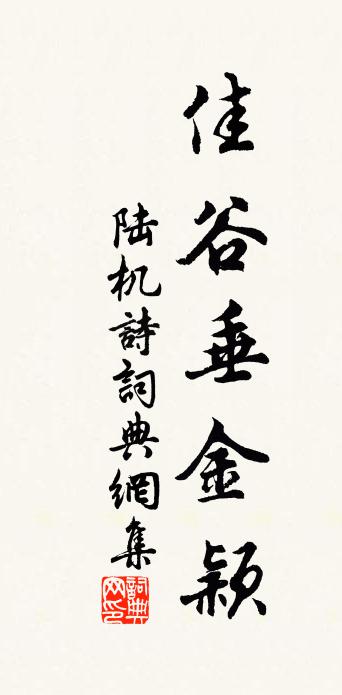 佳谷垂金颖
陆机詩詞典網集
詞典网印